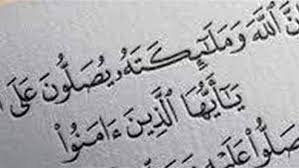 ٱللَّهَ وَمَلَٰٓئِكَتَهُۥ يُصَلُّونَ عَلَى
يَٰٓأَيُّهَا ٱلَّذِينَ ءَامَنُوا۟
صَلُّوا۟